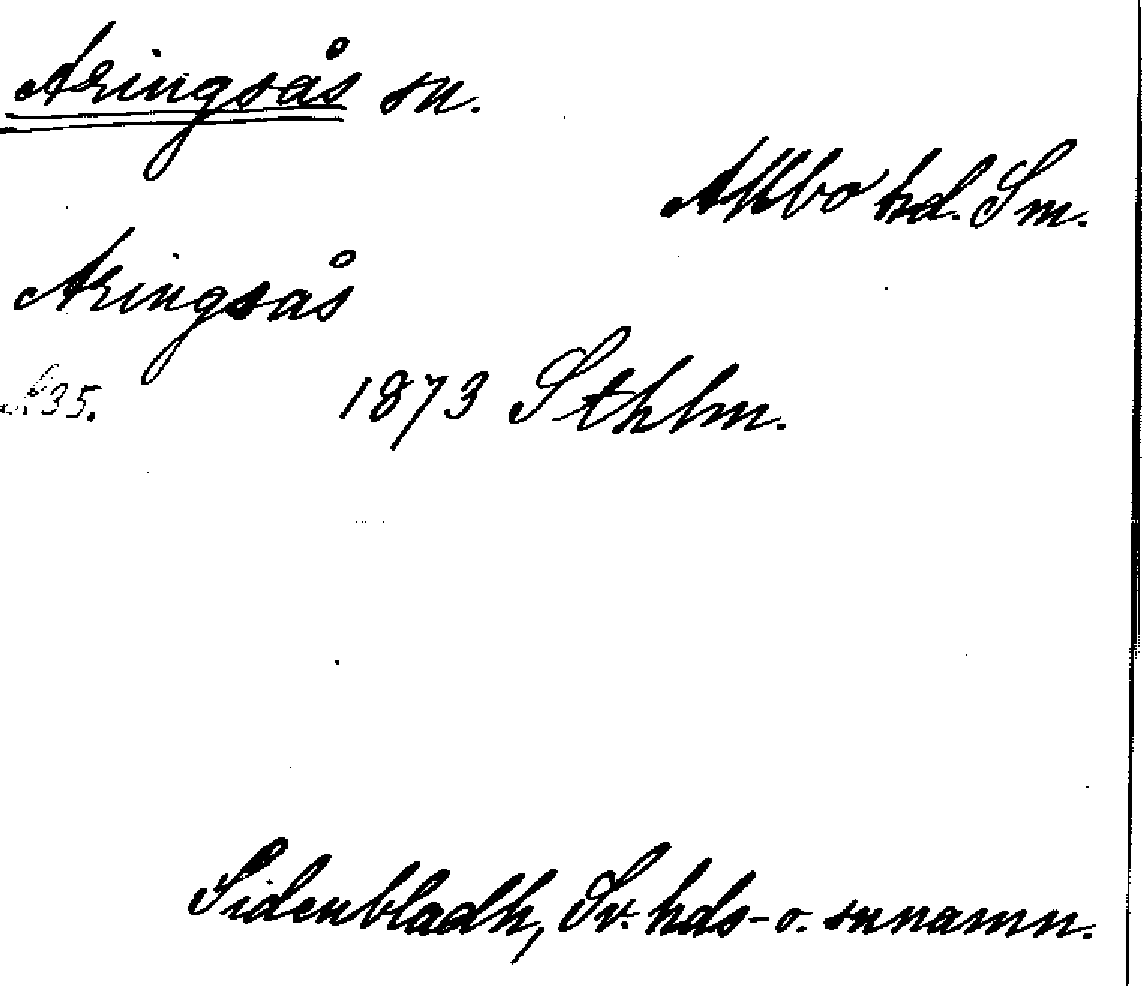 Aringsås sn.
Allbo hd. Sm.
Aringsås
S. 35. 1873 Sthlm.
Sidenbladh, Sv. hds- o. snnamn.